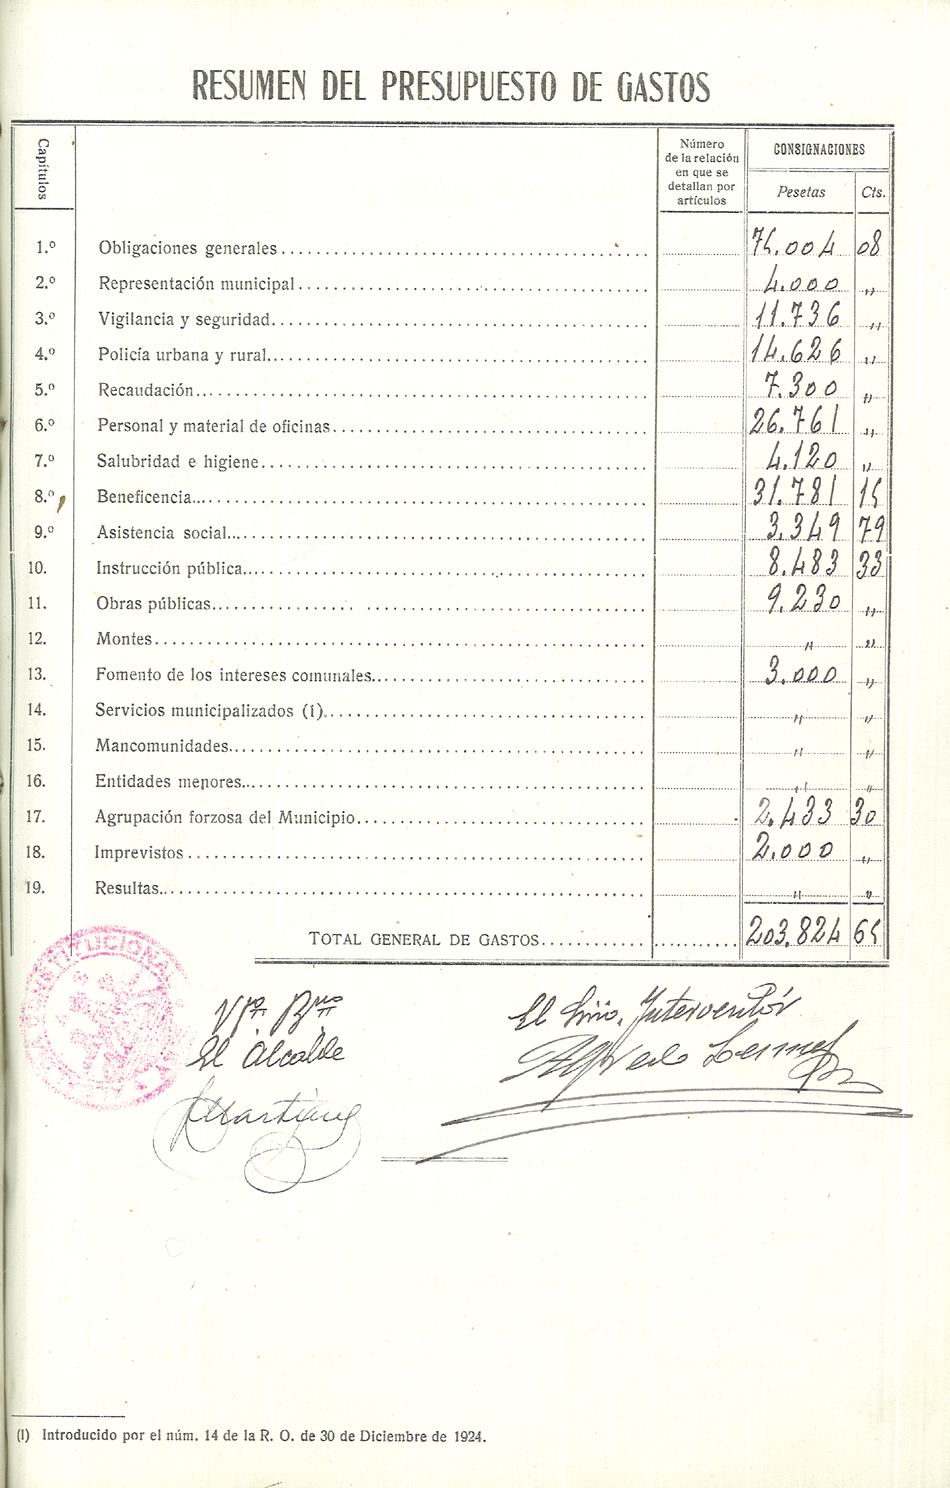 RESUMEN DEL PRESUPUESTO DE GASTOS
Capítulos
Número de la relación en que se detallan por artículos
CONSIGNACIONES
Pesetas Cts.
1.º Obligaciones generales 75.004 08
2.º Representación municipal 4.000 "
3.º Vigilancia y seguridad 11.736 "
4.º Policía urbana y rural 14.626 "
5.º Recaudación 7.300 "
6.º Personal y material de oficinas 26.761 "
7.º Salubridad e higiene 4.120 "
8.º Beneficencia 31.781 15
9.º Asistencia social 3.349 79
10. Instrucción pública 8.483 33
11. Obras públicas 9.230 "
12. Montes " "
13. Fomento de los intereses comunales 3.000 "
14. Servicios municipalizados (1) " "
15. Mancomunidades " "
16. Entidades menores " "
17. Agrupación forzosa del Municipio 2.433 30
18. Imprevistos 2.000 "
19. Resultas " "
TOTAL GENERAL DE GASTOS 203.824 65
Vº Bº
El Alcalde
Martínez
El Srio. Interventór
Alfredo
(1) Introducido por el núm. 14 de la R. O. de 30 de Diciembre de 1924.